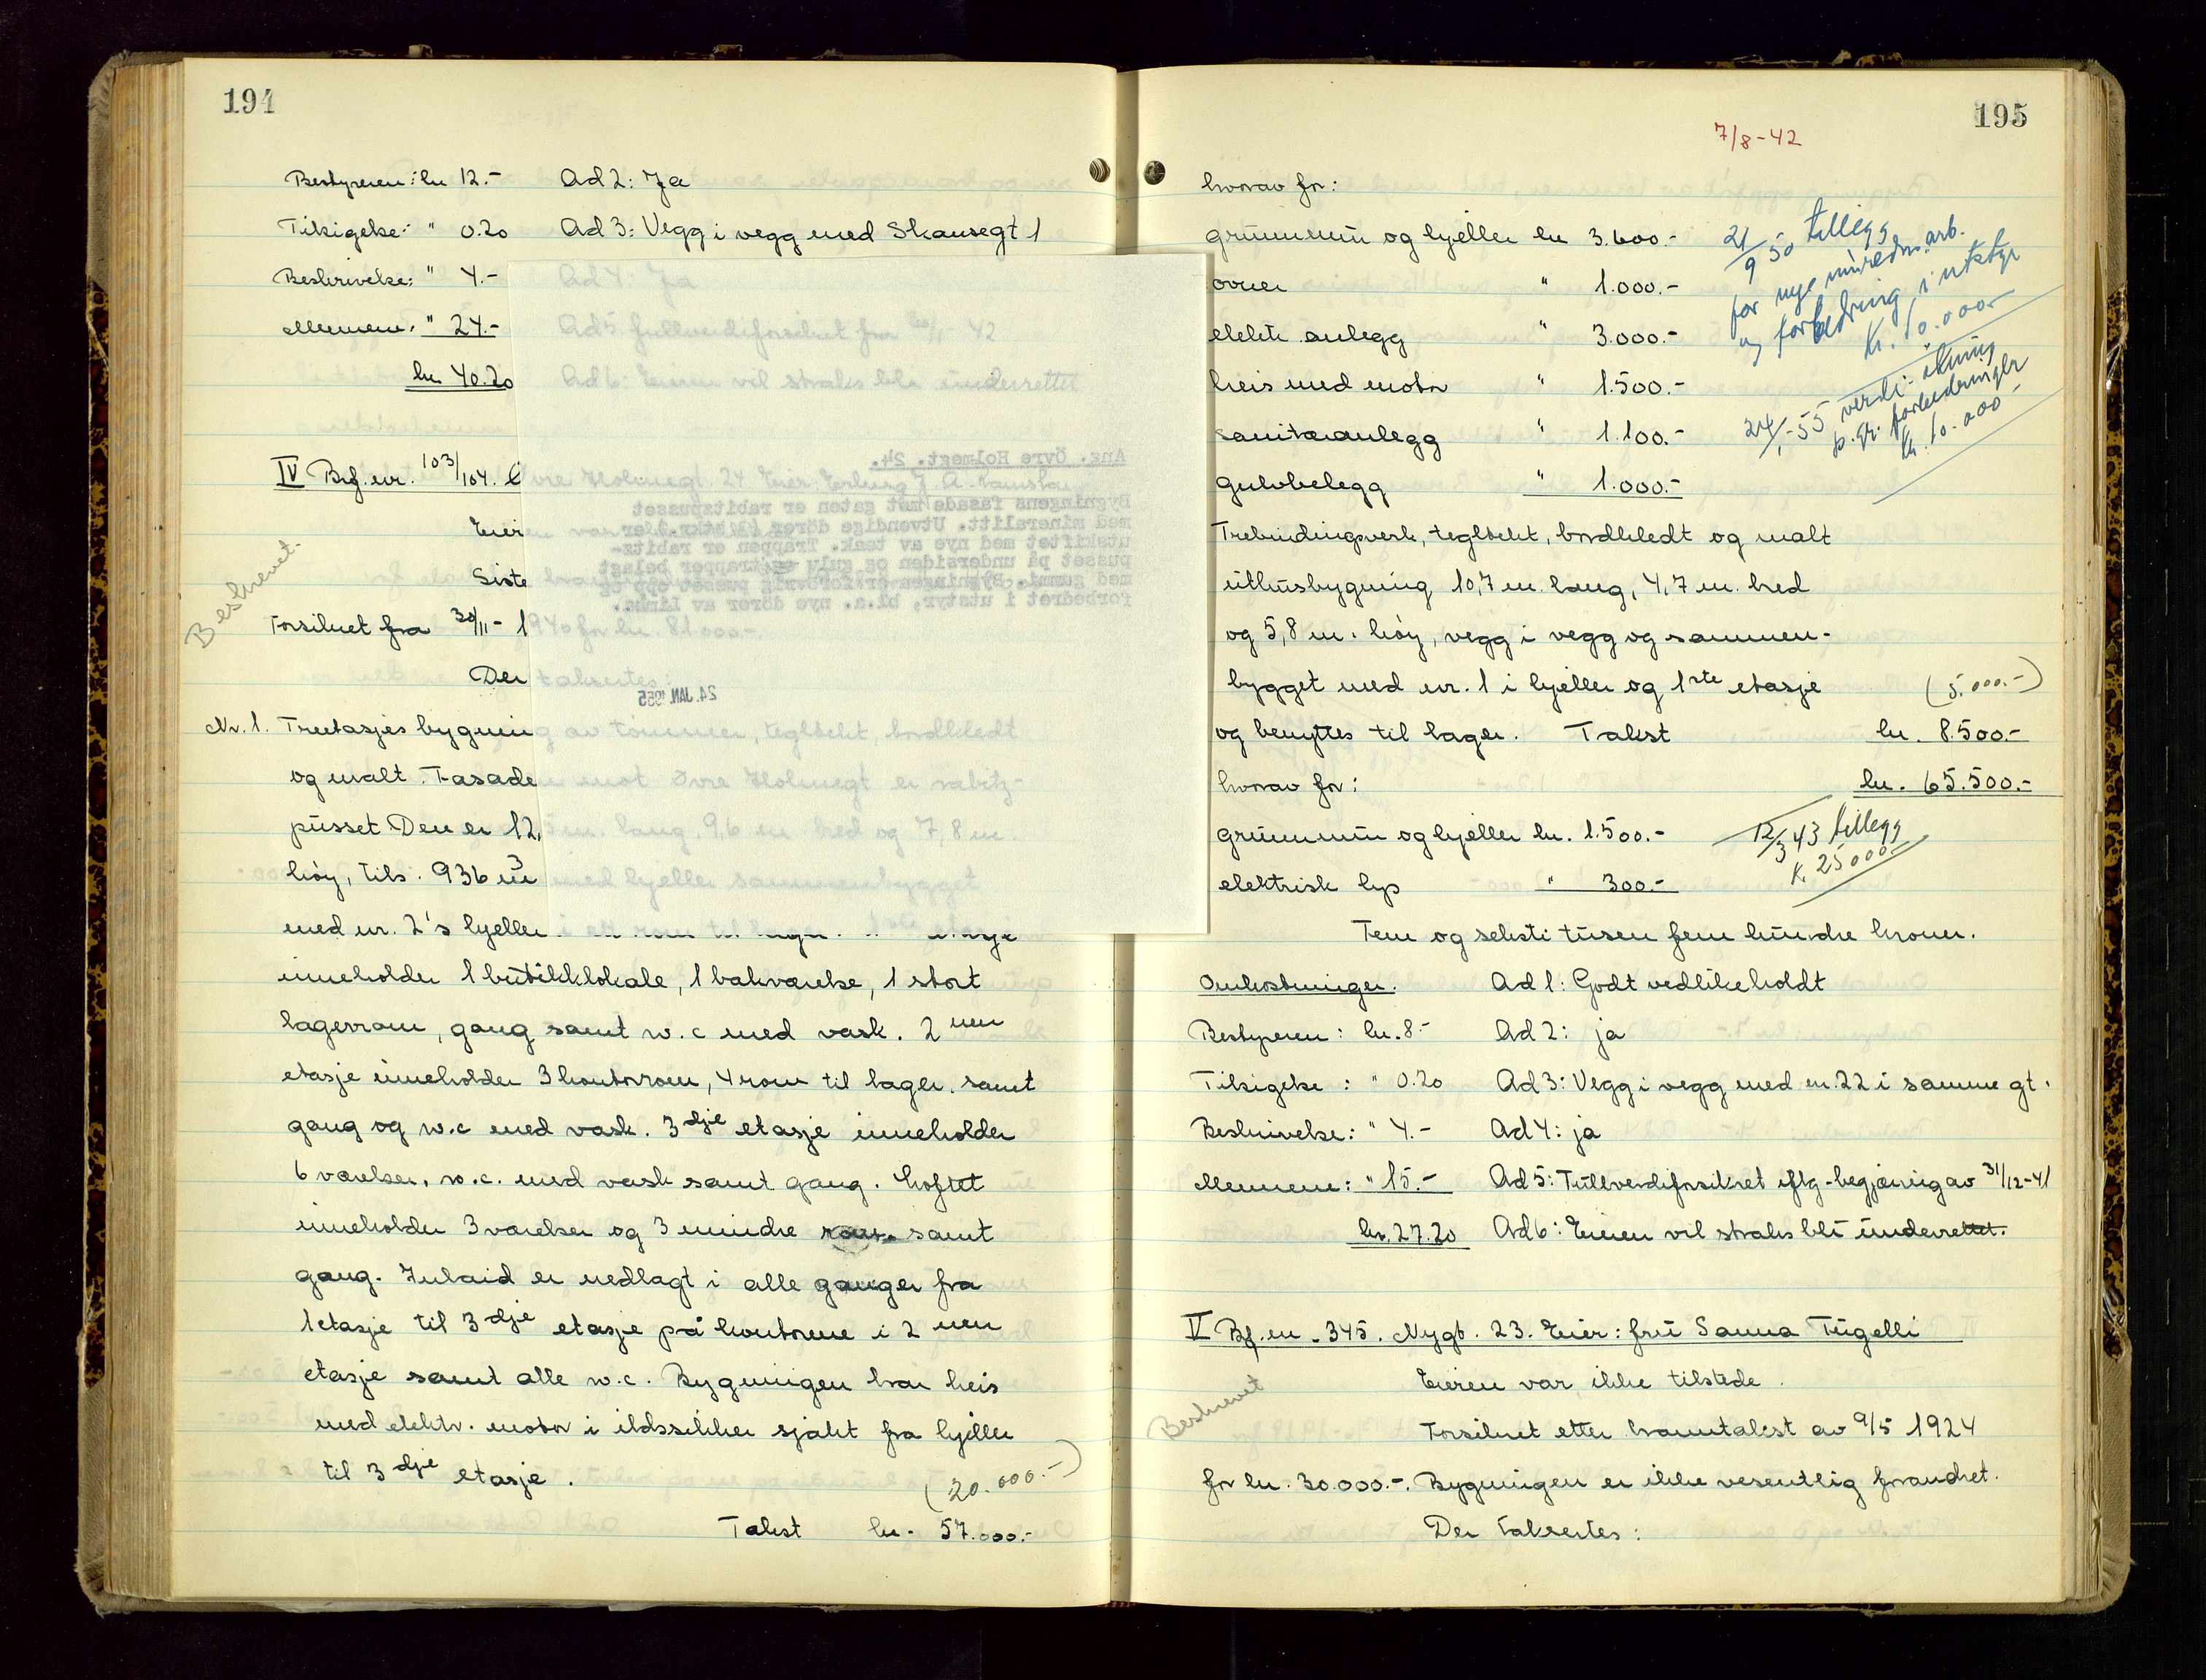 194
Bestyreren: kr 12.- Ad 2: Ja
Tilsigelse: " 0.20 Ad 3: Vegg i vegg med Skansegt 1
Beskrivelse: " 4.- Ad 4: Ja
Mennene: " 24.- Ad 5 fullverdiforsikret fra 20/1 - 42
kr. 40.20 Ad 6: Eieren vil straks bli underrettet
IV Brf. nr. 103/104. Øvre Holmegt. 24 Eier: Erling J. A.
Ang. Övre Holmegt. 24.
Bygningens fasade mot gaten er rabitspusset
med mineralitt. Utvendige dörer (3 stkr.) er
utskiftet med nye av teak. Trappen er rabitz-
pusset på undersiden og gulv og trapper belagt
med gummi. Bygningen er forövrig pusset opp og
forbedret i utstyr, bl.a. nye dörer av Limba.
24. JAN. 1955
Beskrevet.
Eieren var
Siste
Forsikret fra 30/11- 1940 for kr. 81.000.-
Der takseertes:
Nr. 1. Treetasjes bygning av tömmer, tegltekt, bordkledt
og malt. Fasaden mot Øvre Holmegt er rabitz-
pusset Den er 12, m. lang, 9,6 m bred og 7,8 m.
høy, tils. 936 m3 med kjeller sammenbygget
med nr. 2's kjeller i ett rom til lager. etasje
inneholder 1 butikklokale, 1 bakværelse, 1 stort
lagerrom, gang samt w.c med vask. 2nen
etasje inneholder 3 kontorrom, 4 rom til lager, samt
gang og w.c med vask. 3dje etasje inneholder
6 værelser, w.c. med vask samt gang. Loftet
inneholder 3 værelser og 3 mindre rom samt
gang. Inlaid er nedlagt i alle ganger fra
1 etasje til 3dje etasje på kontorene i 2nen
etasje samt alle w.c. Bygningen har heis
med elektr. motor i ildssikker sjakt fra kjeller
til 3dje etasje.
(20.000.-)
Takst kr. 57.000.-
195
7/8-42
hvorav for:
grunnmur og kjeller kr 3.600.-
ovner " 1.000.-
elektr. anlegg " 3.000.-
heis med motor " 1.500.-
sanitæranlegg " 1.100.-
gulvbelegg " 1.000.-
21/9 50 tillegg
for nye innredn.arb.
og forbedring i utstyr
kr. 10.000.-
24/1-55 verdi-ökning
p.gr. forbedringer
kr. 10.000.-
Trebindingsverk, teglteket, bordkledt og malt
uthusbygning 10,7 m. lang, 4,7 m. bred
og 5,8 m. höy, vegg i vegg og sammen-
bygget med nr. 1 i kjeller og 1ste etasje
(5.000.-)
og benyttes til lager. Takst kr. 8.500.-
hvorav for: kr. 65.500.-
grunnmur og kjeller kr. 1.500.-
elektrisk lys " 300.-
12/3 43 tillegg
k. 25000.-
Fem og seksti tusen fem hundre kroner.
Omkostninger. Ad 1: Godt vedlikeholdt
Bestyreren: kr. 8.- Ad 2: ja
Tilsigelse: " 0.20 Ad 3: Vegg i vegg med nr. 22 i samme gt.
Beskrivelse: " 4.- Ad 4: ja
Mennene: " 15.- Ad 5: Fullverdiforsikret iflg-begjæring av 31/12-41
kr. 27.20 Ad 6: Eieren vil straks bli underrettet.
V Bf. nr. 345. Nygt. 23. Eier: fru Sanna Fugelli
Beskrevet
Eieren var ikke tilstede.
Forsikret etter branntakst av 9/5 1924
for kr. 30.000.-. Bygningen er ikke vesentlig forandret.
Der takseertes: